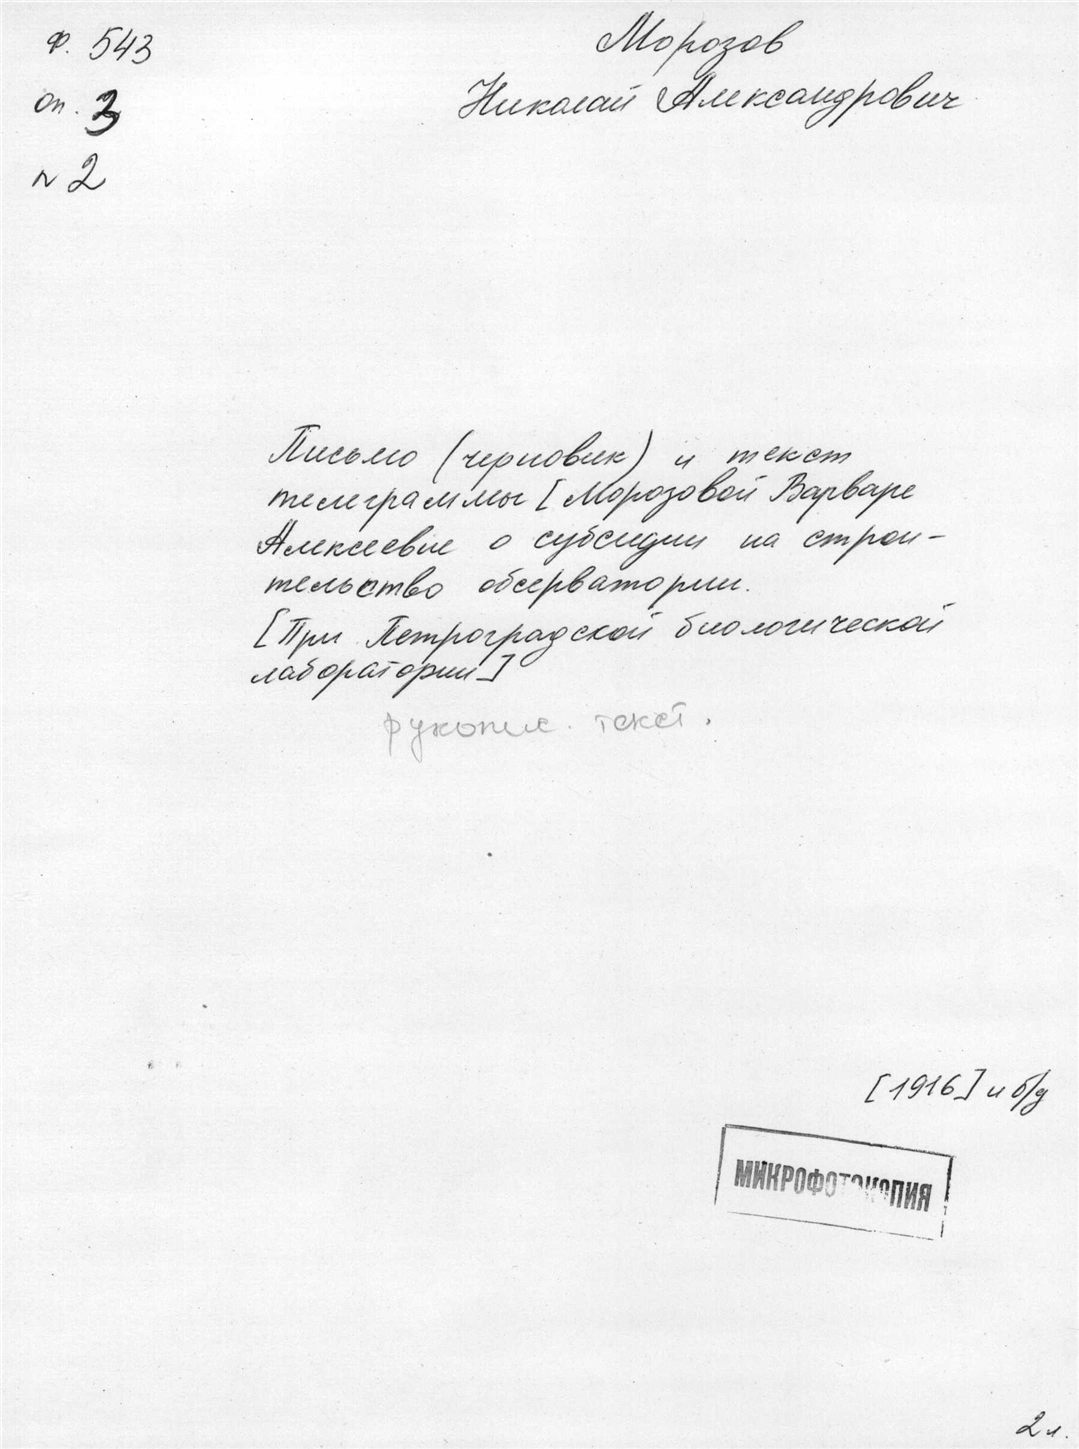 Ф. 543
оп. 3
N 2
Морозов
Николай Александрович
Письмо (черновик) и текст
телеграммы [Морозовой Варваре
Алексеевне о субсидии на строи-
тельство обсерватории.
[При Петроградской биологической
лаборатории]
рукопис. текст.
[1916] и б/д
МИКРОФОТОКОПИЯ
2 л.